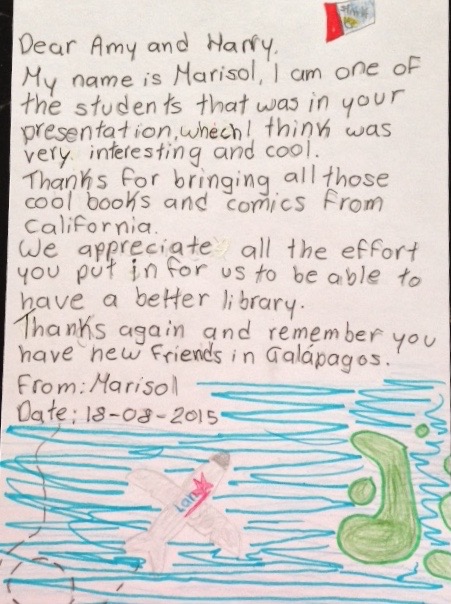 Dear Amy and Harry,
My name is Marisol, I am one of
the students that was in your
presentation, whech I think was
very interesting and cool.
Thanks for bringing all those
cool books and comics from
California.
We appreciate all the effort
you put in for us to be able to
have a better library.
Thanks again and remember you
have new friends in Galápagos.
From: Marisol
Date: 18-08-2015
Lan